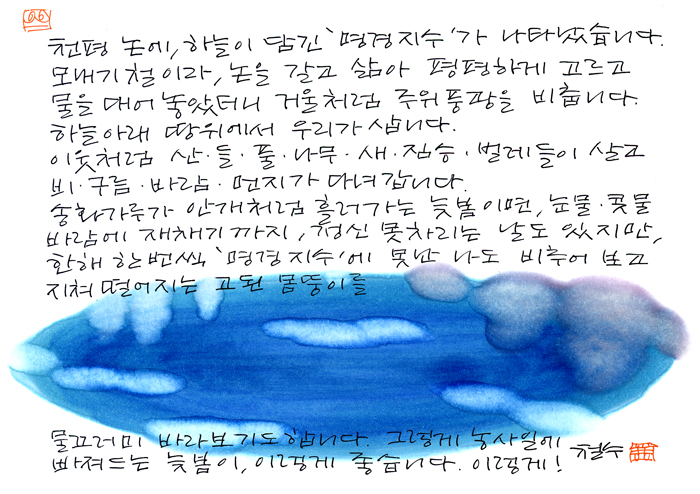 천평 논에, 하늘이 담긴 '명경지수'가 나타났습니다.
모내기철이라, 논을 갈고 삶아 평평하게 고르고
물을 대어 놓았더니 거울처럼 주위풍광을 비춥니다.
하늘아래 땅위에서 우리가 삽니다.
이웃처럼 산·들·풀·나무·새·짐승·벌레들이 살고
비·구름·바람·먼지가 다녀갑니다.
송화가루가 안개처럼 흘러가는 늦봄이면, 눈물·콧물
바람에 재채기까지, 정신 못차리는 날도 있지만,
한해 한번씩 '명경지수'에 못난 나도 비추어 보고
지쳐 떨어지는 고된 몸뚱이를
물끄러미 바라보기도합니다. 그렇게 농사일에
빠져드는 늦봄이, 이렇게 좋습니다. 이렇게!
철수